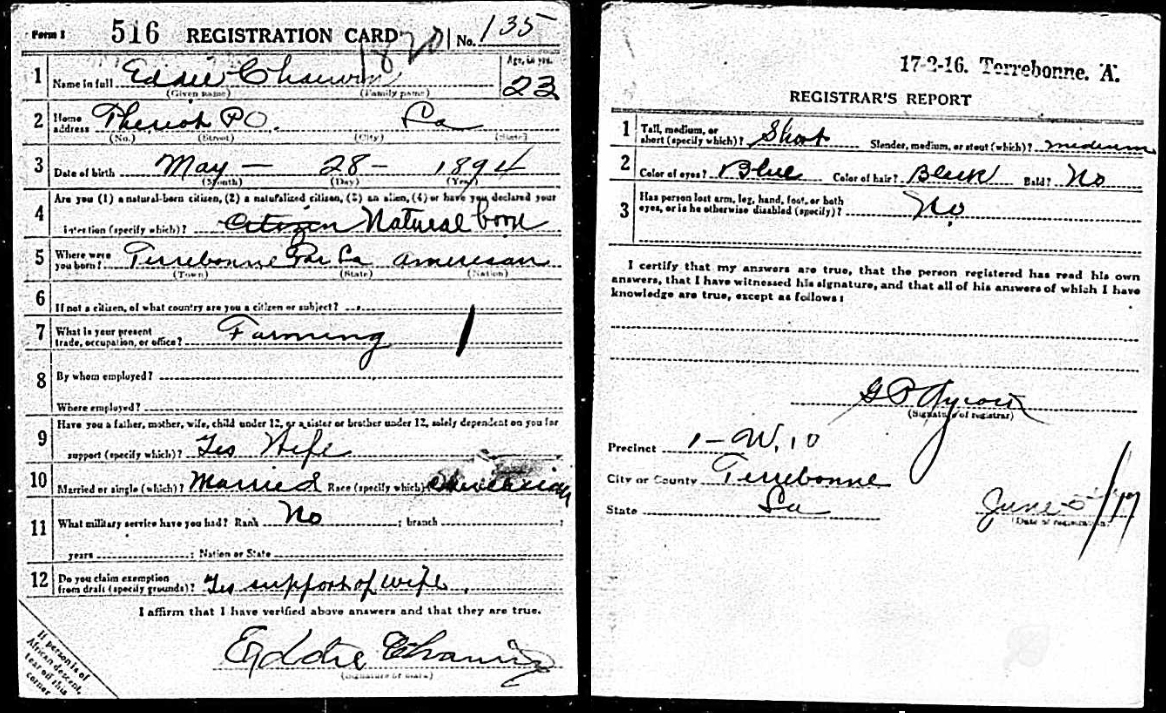 Form 1 516 REGISTRATION CARD No. 135
1 Name in full Eddie Chauvin Age, in yrs. 23
(Given name) (Family name)
2 Home address Theriot P.O. La
(No.) (Street) (City) (State)
3 Date of birth May - 28 - 1894
(Month) (Day) (Year)
4 Are you (1) a natural-born citizen, (2) a naturalized citizen, (3) an alien, (4) or have you declared your
intention (specify which)? Citizen Natural born
5 Where were you born? Terrebonne Par La american
(Town) (State) (Nation)
6 If not a citizen, of what country are you a citizen or subject?
7 What is your present trade, occupation, or office? Farming
8 By whom employed?
Where employed?
9 Have you a father, mother, wife, child under 12, or a sister or brother under 12, solely dependent on you for
support (specify which)? Yes Wife
10 Married or single (which)? Married Race (specify which)?
11 What military service have you had? Rank No ; branch ;
years ; Nation or State
12 Do you claim exemption from draft (specify grounds)? Yes support of wife
I affirm that I have verified above answers and that they are true.
Eddie Chauvin
(Signature or mark)
If person is of
African descent,
tear off this
corner.
17-2-16. Terrebonne. A.
REGISTRAR'S REPORT
1 Tall, medium, or short (specify which)? Short Slender, medium, or stout (which)? medium
2 Color of eyes? Blue Color of hair? Black Bald? No
3 Has person lost arm, leg, hand, foot, or both eyes, or is he otherwise disabled (specify)? No
I certify that my answers are true, that the person registered has read his own
answers, that I have witnessed his signature, and that all of his answers of which I have
knowledge are true, except as follows:
(Signature of registrar)
Precinct 1 - W. 10
City or County Terrebonne
State La June 5/17
(Date of registration)